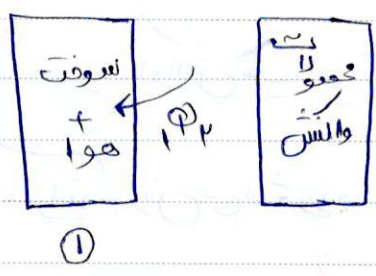 سوخت
+
هوا
محصولات
واکنش
①